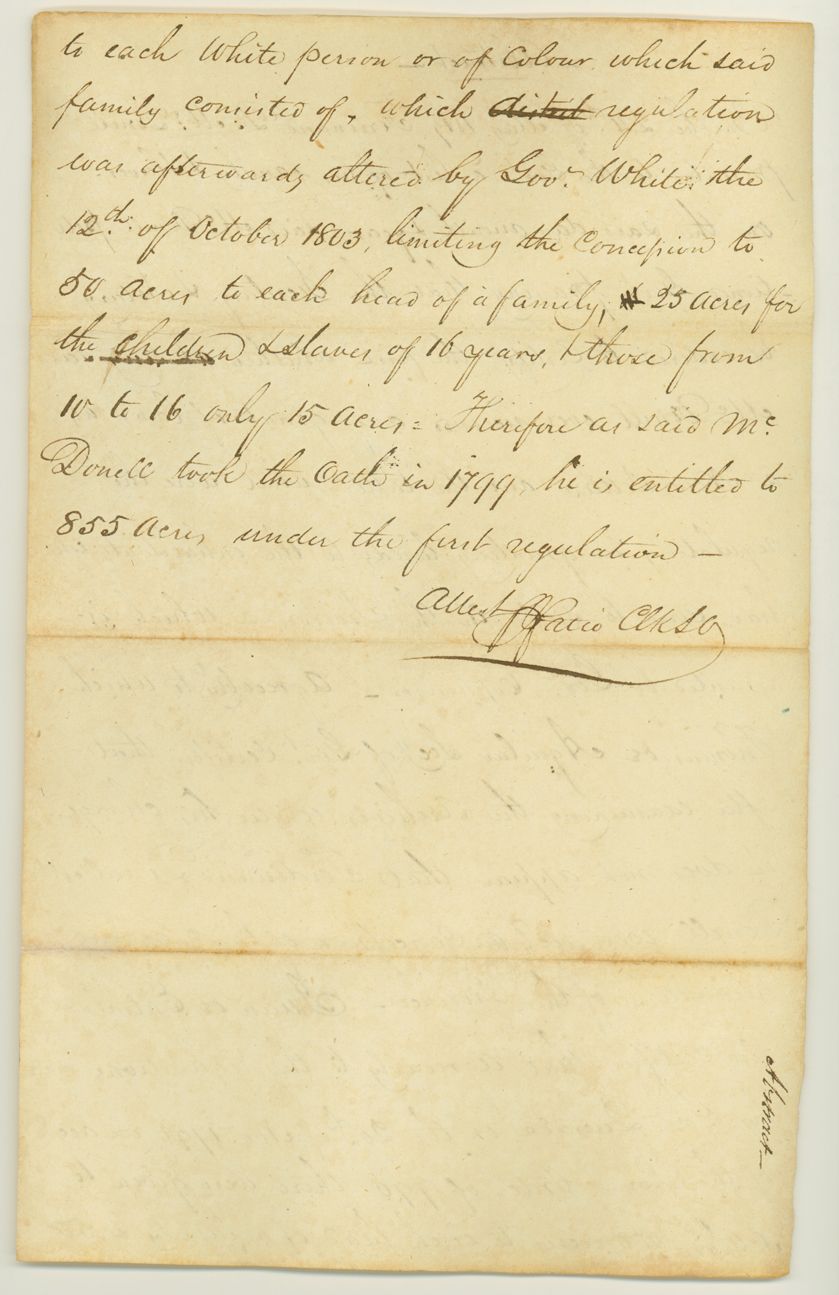 to each White person or of Colour which said
family consisted of, which regulation
was afterwards altered by Govr. White the
12th. of October 1803, limiting the Concession to
50 acres to each head of a family, 25 acres for
the children & slaves of 16 years, & those from
10 to 16 only 15 acres = Therefore as said Mc.
Donell took the Oath in 1799 he is entitled to
855 Acres under the first regulation —
Attest FJFatio Clk SO
Abstract—